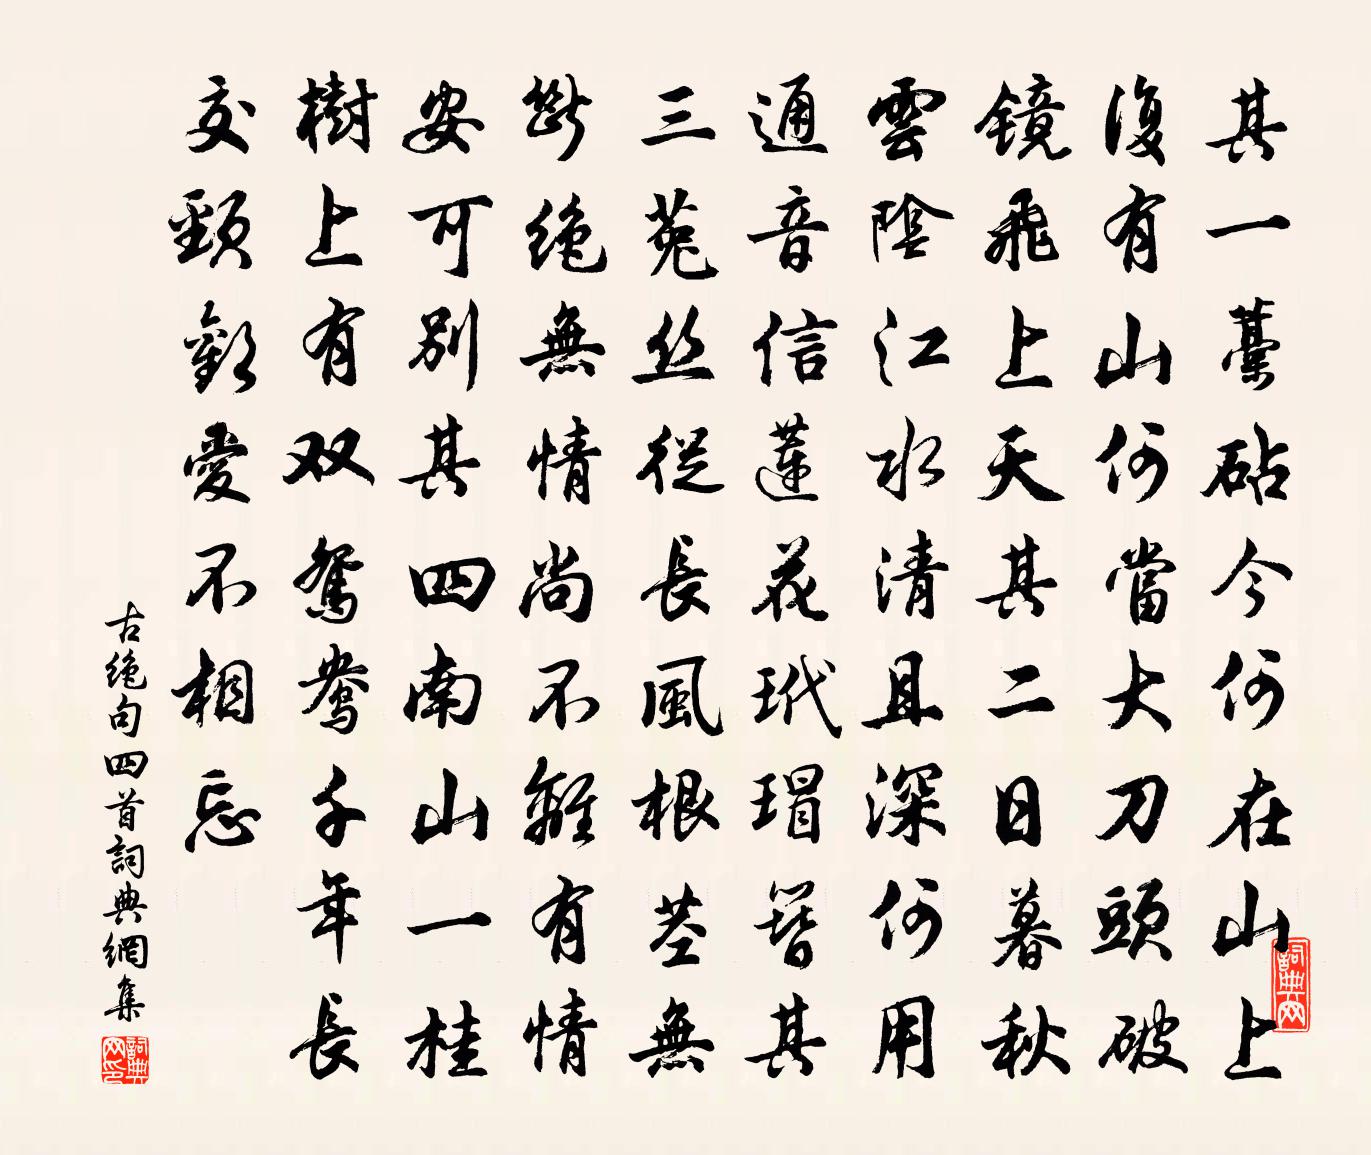 其一藁砧今何在山上
復有山何當大刀頭破
镜飛上天其二日暮秋
雲陰江水清且深何用
通音信蓮花玳瑁簪其
三菟丝從長風根茎無
斷绝無情尚不離有情
安可别其四南山一桂
樹上有双鴛鴦千年長
交頸歡愛不相忘
古绝句四首詞典網集
詞典网
詞典网印